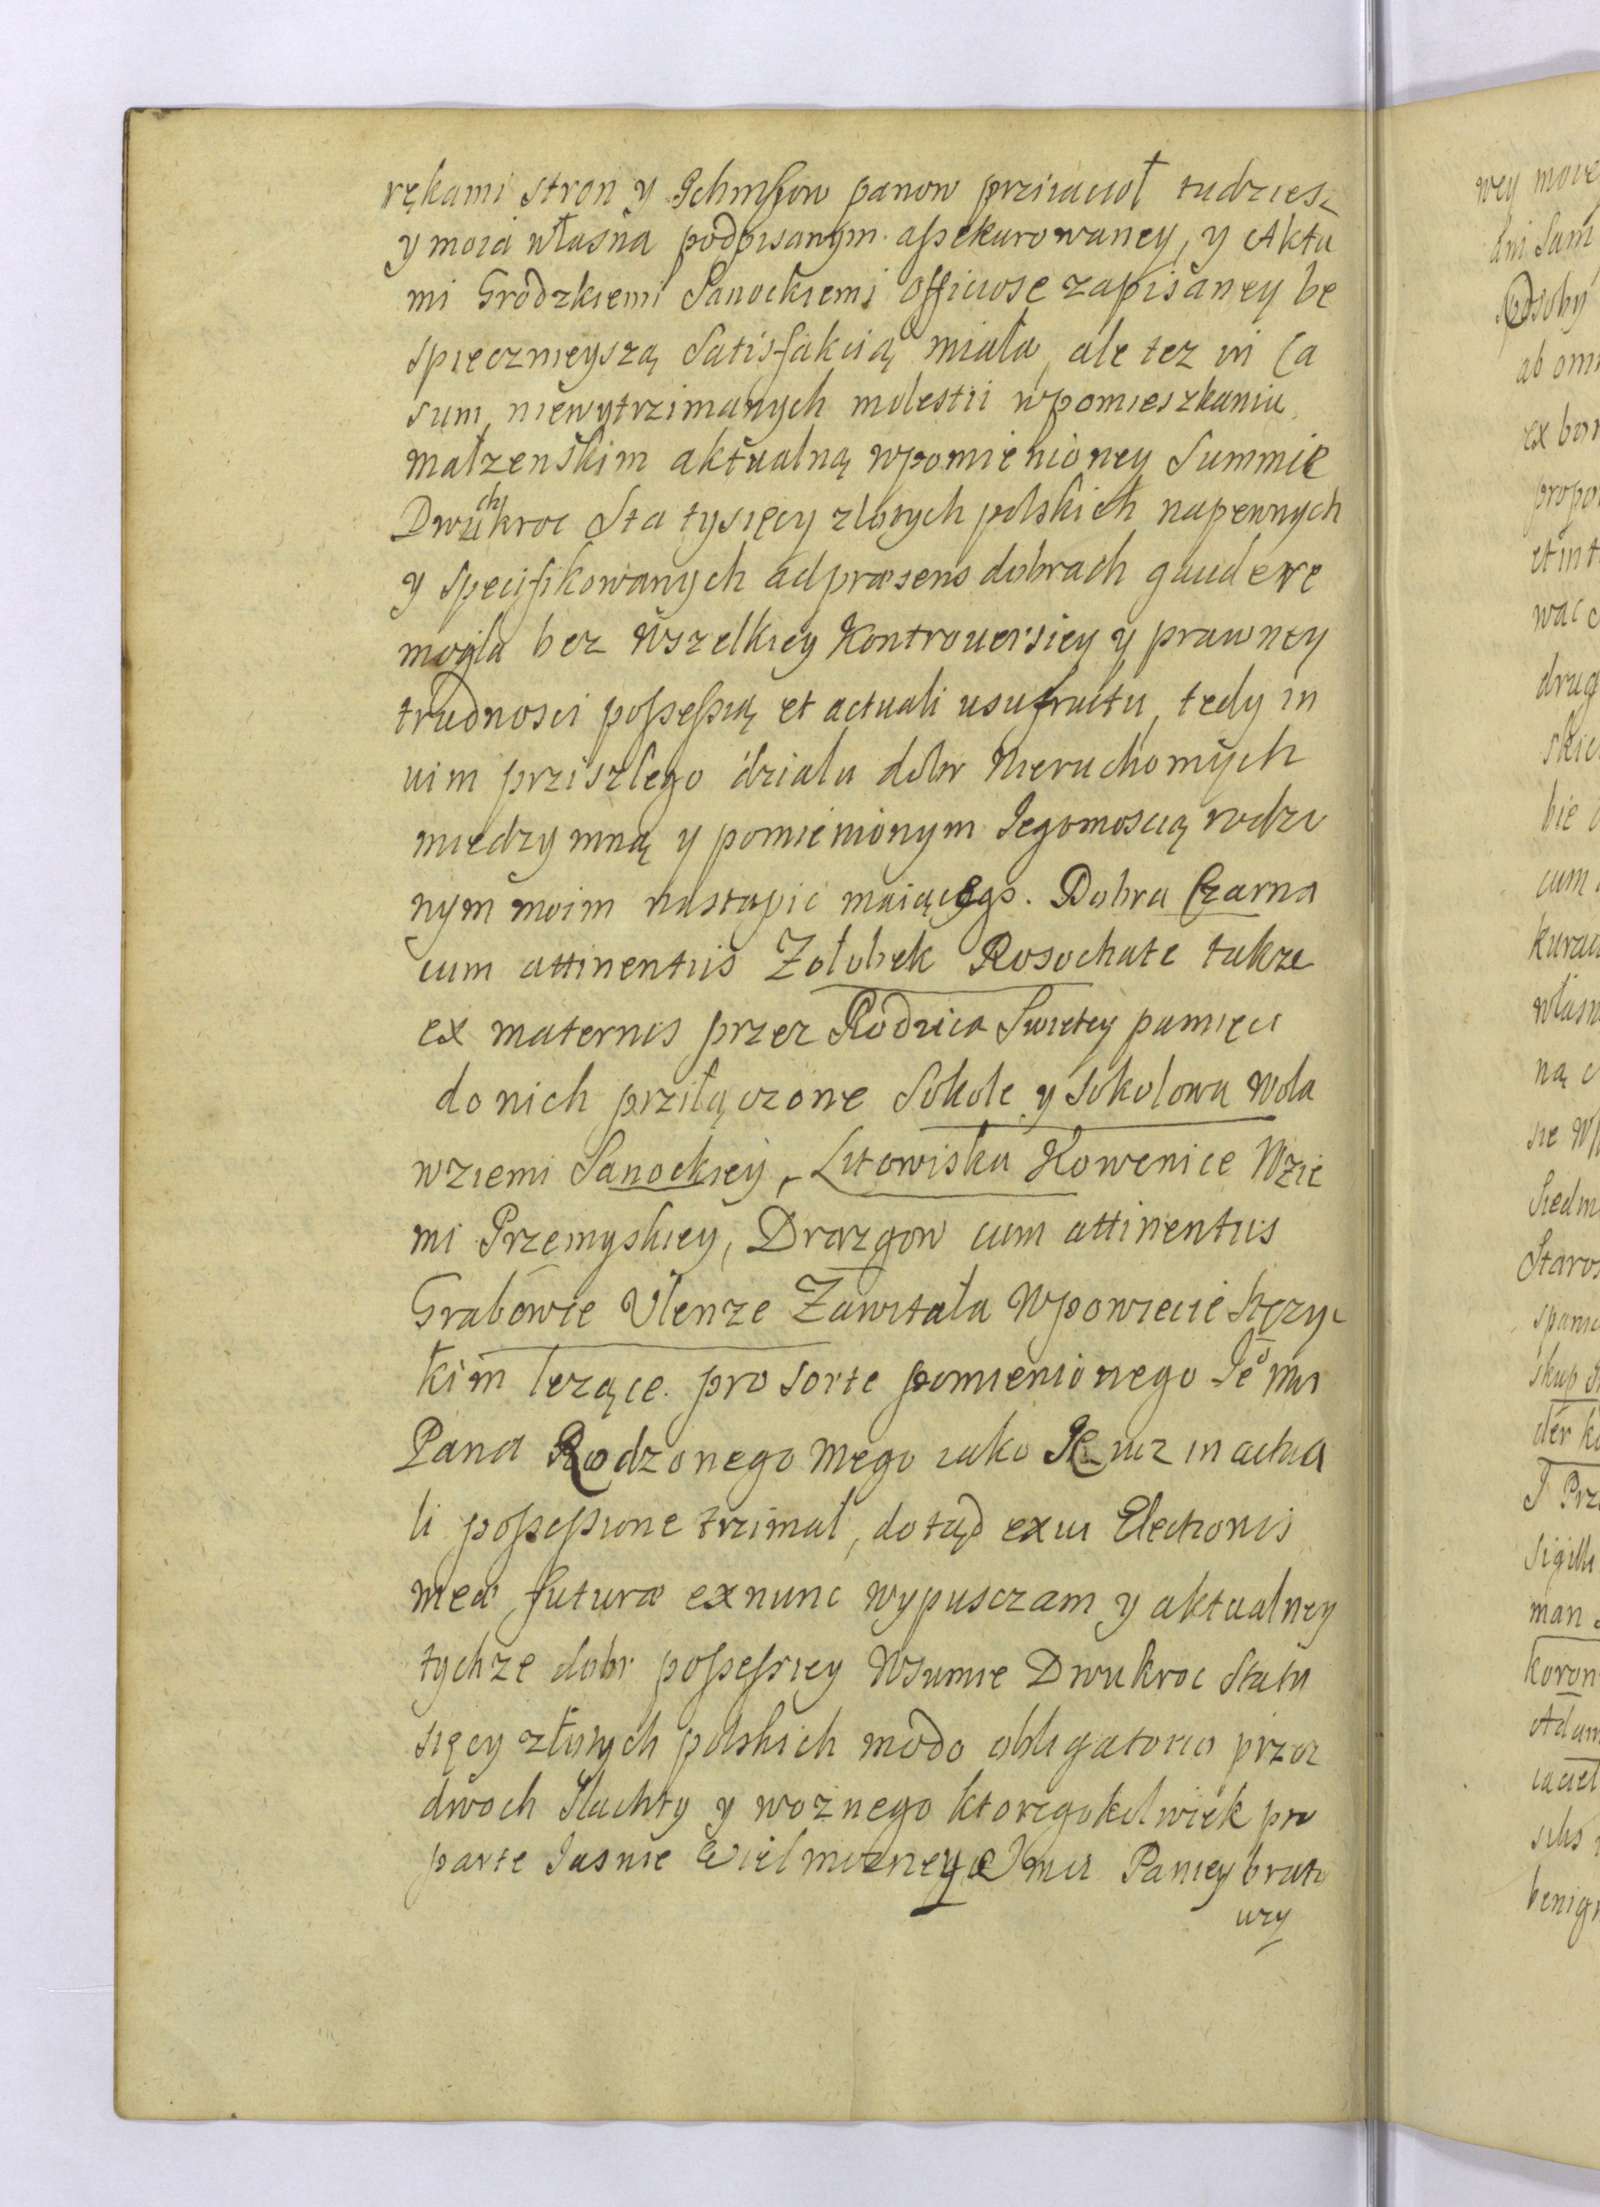 rękami stron y Ichmsciow panow prziiacioł tudziesz
y moia własna podpisanym assekurowaney, y Akta
mi Grodzkiemi Sanockiemi officiose zapisaney be
spiecznieyszą Satisfakcią miała, ale tez in Ca
sum niewytrzimanych molestii wpomieszkaniu
małzenskim aktualną wpomienioney Summie
Dwuchkroc Sta tysięcy zlotych polskich napewnych
y specifikowanych adpræsens dobrach gaudere
mogla bez wszelkiey kontrouersiey y prawney
trudnosci possessią et actuali usufructu, tedy in
uim przisztego działu dobr Nieruchomych
miedzy mną y pomienionym Iegomoscią rodzo
nym moim nastąpic maiącego. Dobra Czarna
cum attinentiis Zołobek Rosochate takze
ex maternis przez Rodzica Swietey pamięci
do nich prziłączone Sokole y Sokolowa Wola
wziemi Sanockiey, Lutowiska Kowenice Wzie
mi Przemyskiey, Drazgow cum attinentiis
Grabowie Ulenze Zawitała Wpowiecie Stęzyc
kim lezące. pro sorte pomienionego Ieo Msci
Pana Rodzonego Mego iako Ie iuz in actua
li possessione trzimał, dotąd exui Electionis
meæ futuræ exnunc wypusczam y aktualney
tychze dobr possessiey Wsumie Dwukroc Statu
sięcy złotych polskich modo obligatorio przez
dwoch Slachty y woznego ktoregokolwiek pro
parte Iasnie Wielmozney Imci Paniey brato
wzy